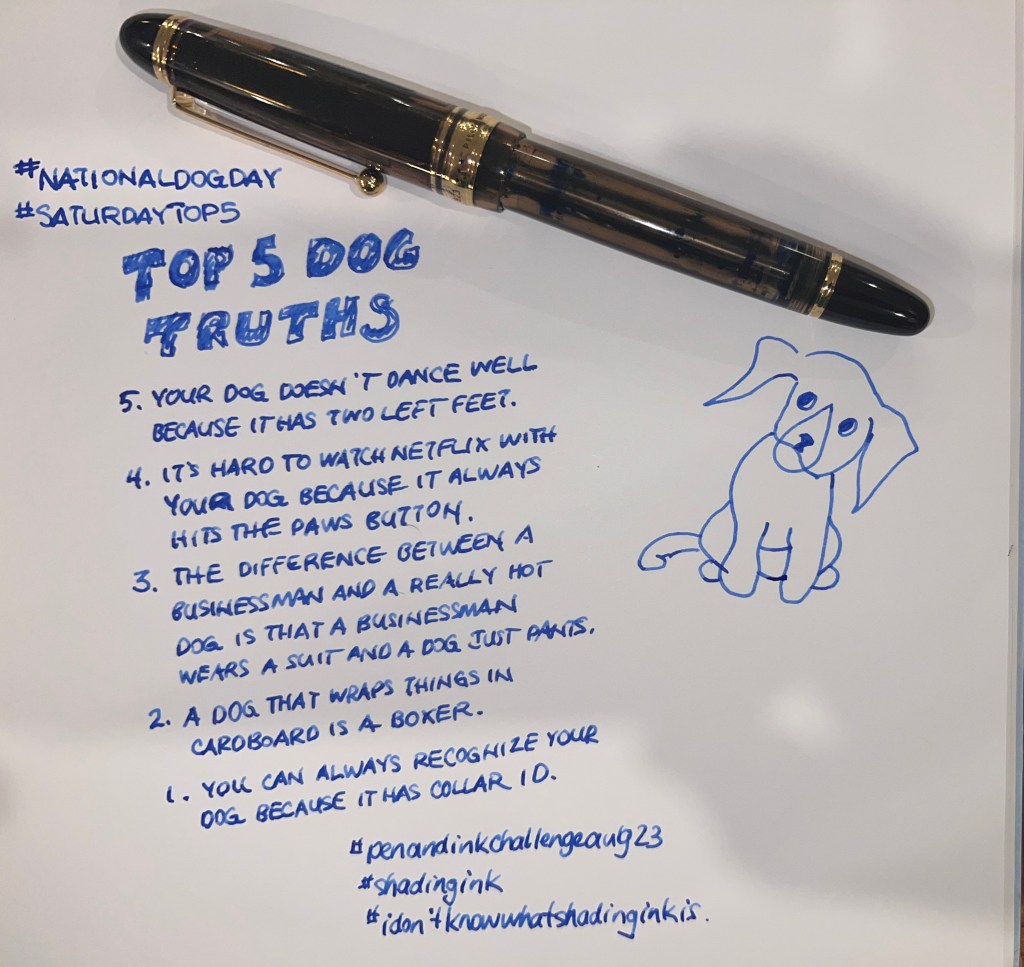 #NATIONALDOGDAY
#SATURDAYTOP5
TOP 5 DOG
TRUTHS
5. YOUR DOG DOESN'T DANCE WELL
BECAUSE IT HAS TWO LEFT FEET.
4. IT'S HARD TO WATCH NETFLIX WITH
YOUR DOG BECAUSE IT ALWAYS
HITS THE PAWS BUTTON.
3. THE DIFFERENCE BETWEEN A
BUSINESSMAN AND A REALLY HOT
DOG IS THAT A BUSINESSMAN
WEARS A SUIT AND A DOG JUST PANTS.
2. A DOG THAT WRAPS THINGS IN
CARDBOARD IS A BOXER.
1. YOU CAN ALWAYS RECOGNIZE YOUR
DOG BECAUSE IT HAS COLLAR ID.
#penandinkchallengeaug23
#shadingink
#idon'tknowwhatshadinginkis.